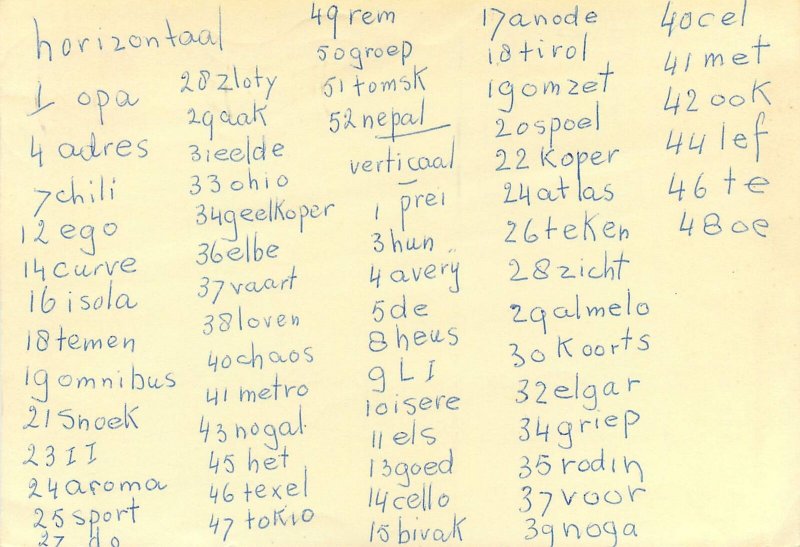 horizontaal
1 opa
4 adres
7 chili
12 ego
14 curve
16 isola
18 temen
19 omnibus
21 Snoek
23 II
24 aroma
25 sport
27 do
28 zloty
29 aak
31 eelde
33 ohio
34 geelkoper
36 elbe
37 vaart
38 loven
40 chaos
41 metro
43 nogal
45 het
46 texel
47 tokio
49 rem
50 groep
51 tomsk
52 nepal
verticaal
1 prei
3 hun
4 averij
5 de
8 heus
9 LI
10 isere
11 els
13 goed
14 cello
15 bivak
17 anode
18 tirol
19 omzet
20 spoel
22 koper
24 atlas
26 teken
28 zicht
29 almelo
30 koorts
32 elgar
34 griep
35 rodin
37 voor
39 noga
40 cel
41 met
42 ook
44 lef
46 te
48 oe